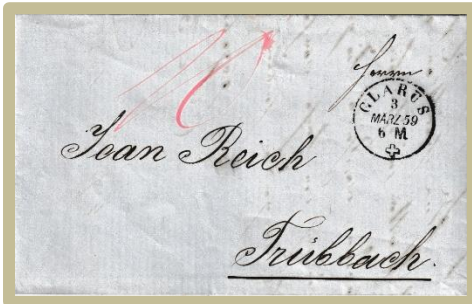 Herrn
GLARUS
3
MÄRZ 59
6 M
Jean Reich
Trübbach.